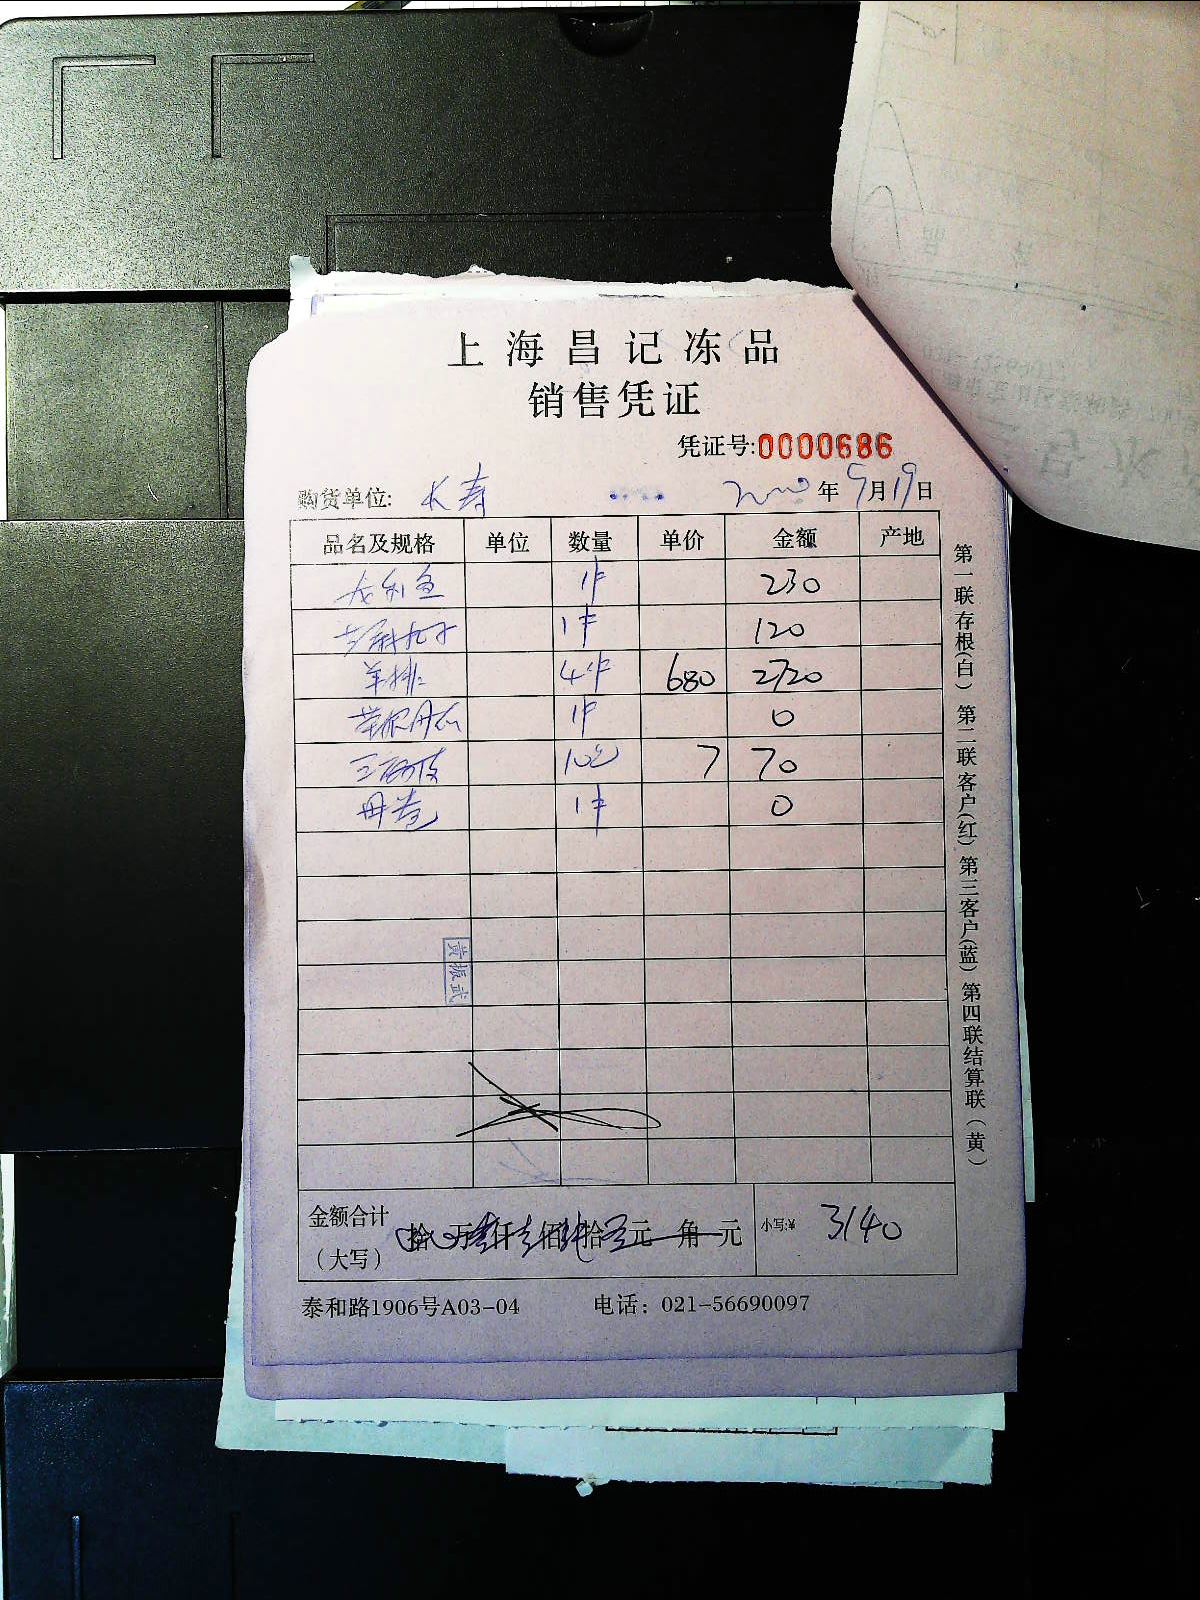 上海昌记冻品
销售凭证
凭证号:0000686
购货单位: 长寿 年 9月19日
品名及规格 单位 数量 单价 金额 产地
龙利鱼 1件 230
1件 120
羊排 4件 680 2720
1件 0
10包 7 70
1件 0
黄振武
金额合计
(大写) 拾 万 仟 佰 拾 元 角 元 小写:¥ 3140
泰和路1906号A03-04 电话: 021-56690097
第一联存根(白) 第二联客户(红) 第三客户(蓝) 第四联结算联(黄)